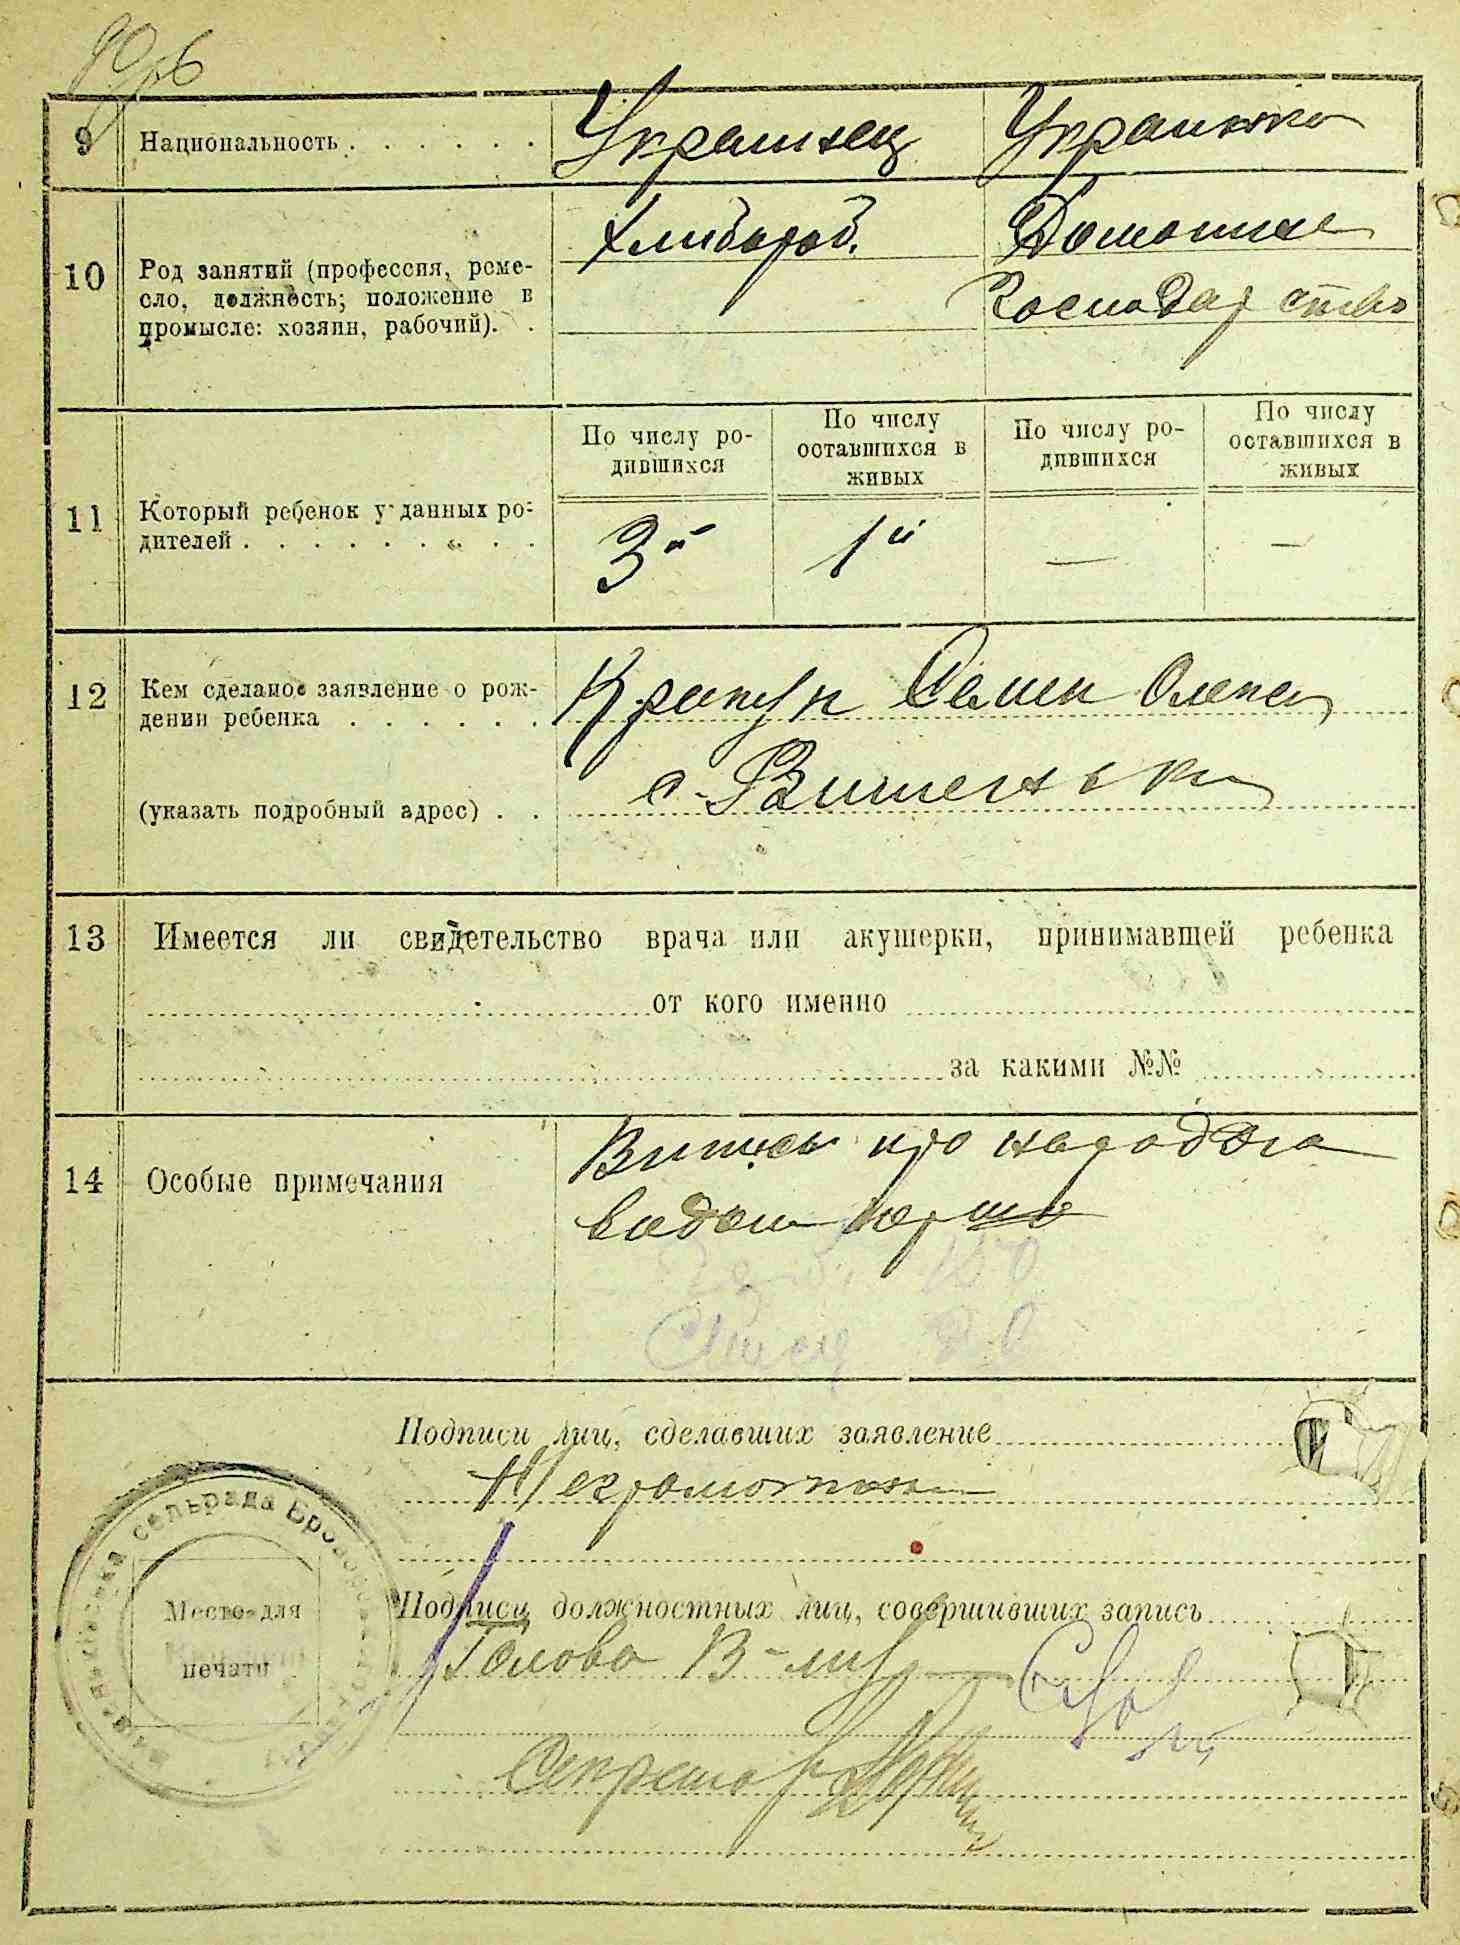 9 Национальность Украинец Украинка
10 Род занятий (профессия, реме-
сло, должность; положение в
промысле: хозяин, рабочий).
Хлибороб. Домашне
Господарство
11 Который ребенок у данных ро-
дителей
По числу ро-
дившихся
По числу
оставшихся в
живых
По числу ро-
дившихся
По числу
оставшихся в
живых
3й 1й — —
12 Кем сделаное заявление о рож-
дении ребенка
Семен Олекс
(указать подробный адрес)
с. Вишеньки
13 Имеется ли свидетельство врача или акушерки, принимавшей ребенка
от кого именно
за какими №№
14 Особые примечания
Випись про
Подписи лиц, сделавших заявление
Неграмотни
Подписи должностных лиц, совершивших запись
Голова
Секретар
сельрада
Место для
печати